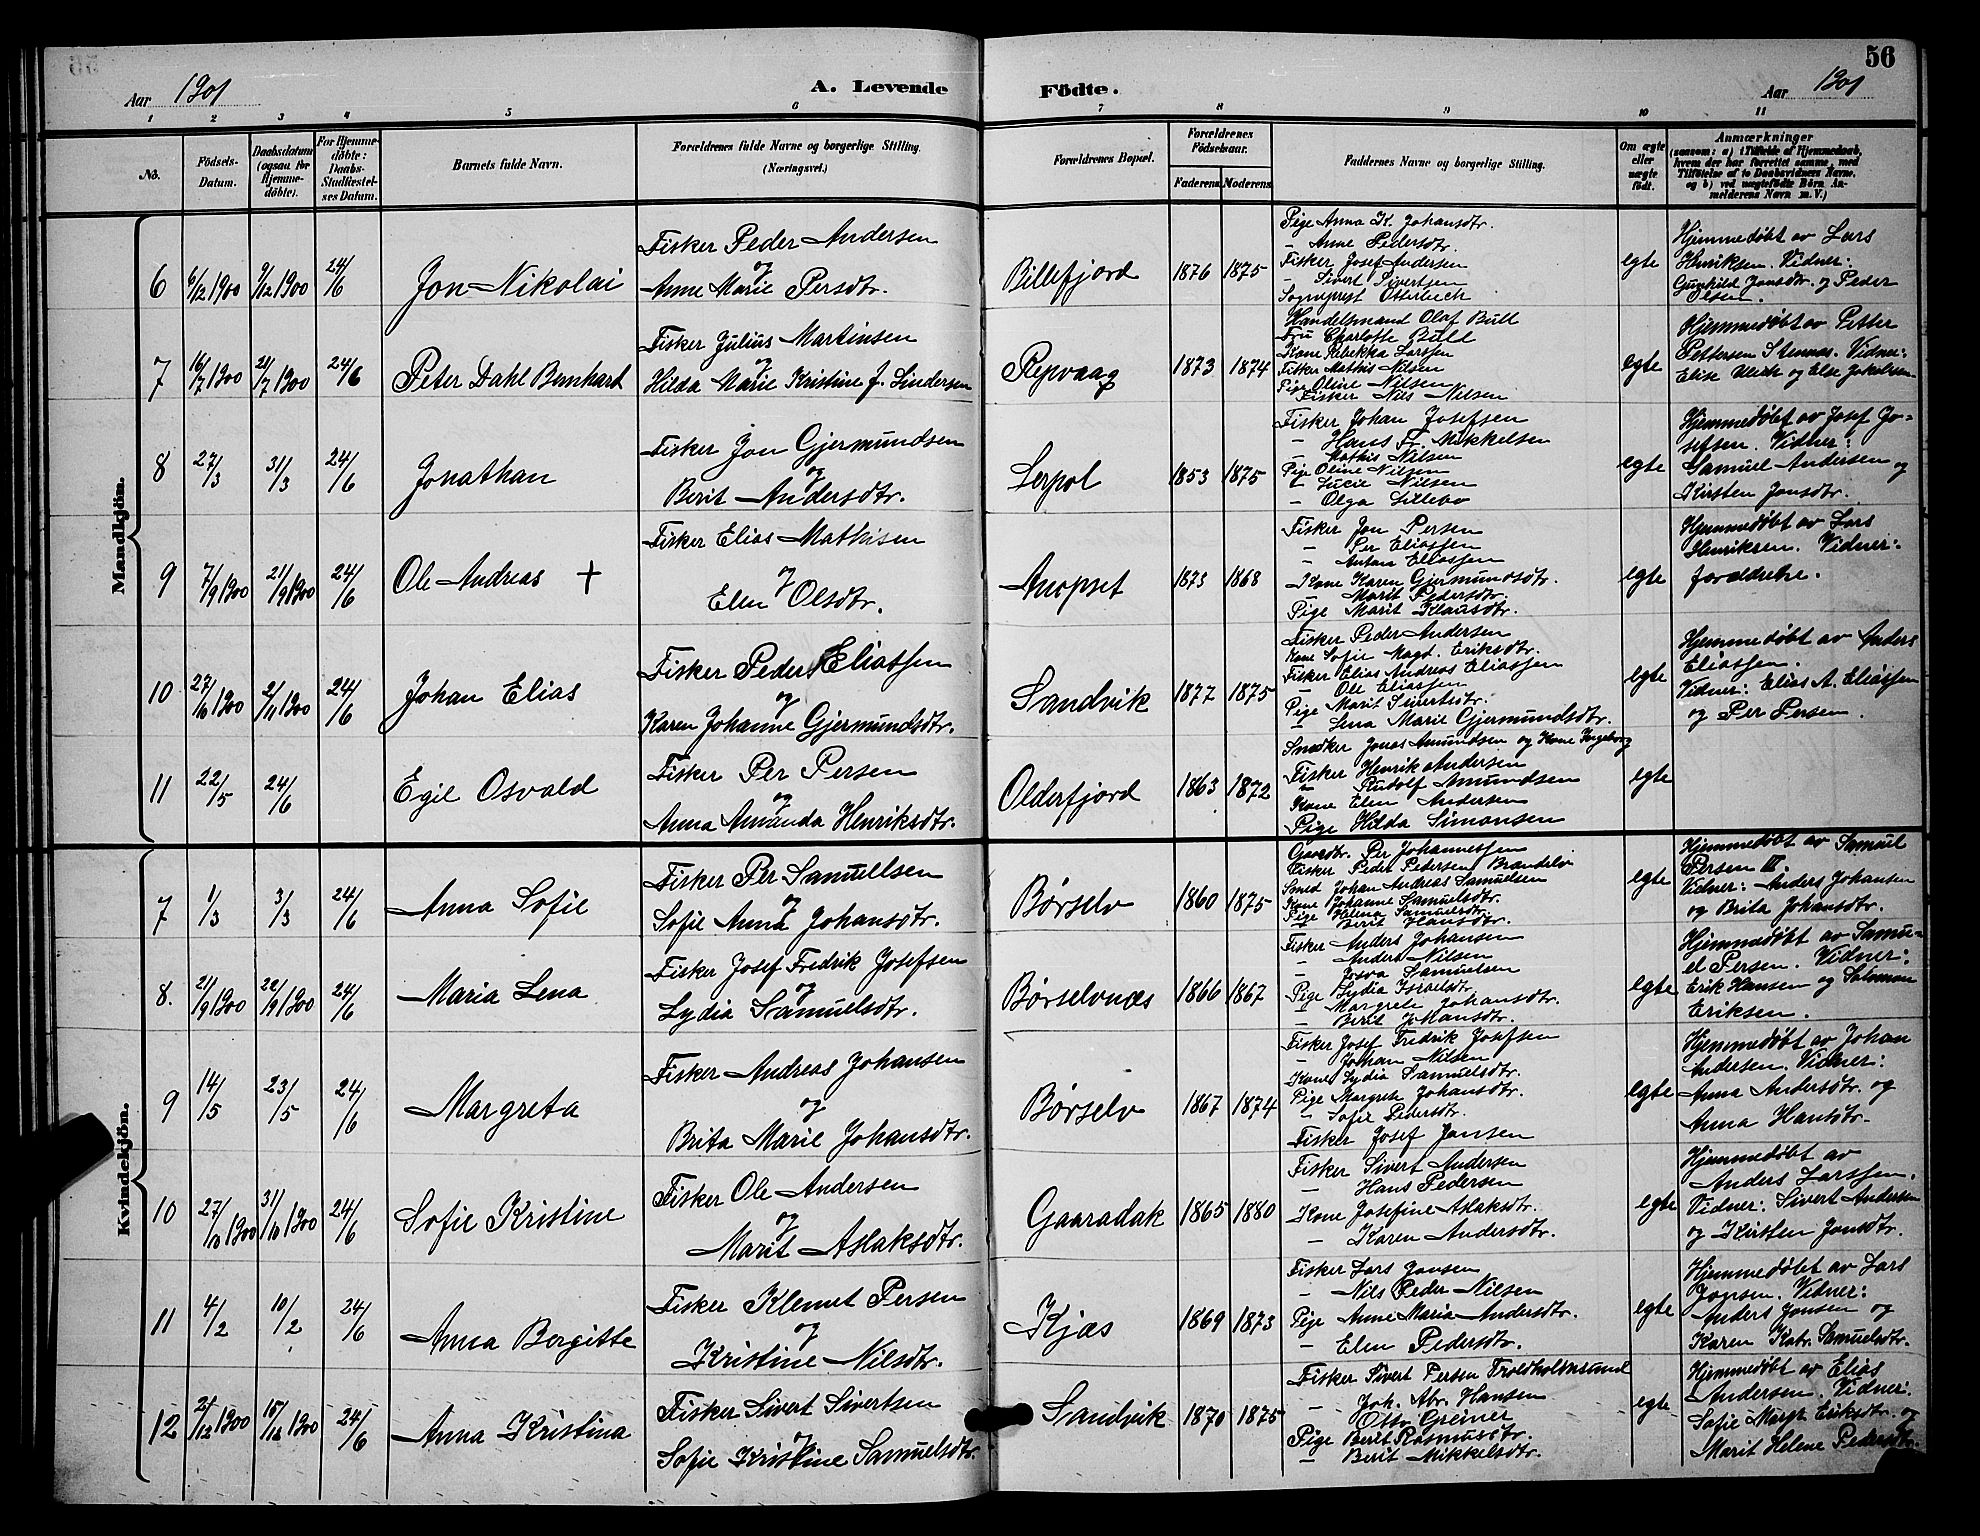 56
Aar 1901
A. Levende Fødte.
Aar 1901
1 2 3 4 5 6 7 8 9 10 11
No.
Födsels-Datum.
Daabsdatum (ogsaa for Hjemme-döbte).
For Hjemme-döbte: Daabs-Stadfæstel-ses Datum.
Barnets fulde Navn.
Forældrenes fulde Navne og borgerlige Stilling. (Næringsvei.)
Forældrenes Bopæl.
Forældrenes Födselsaar.
Faderens Moderens
Faddernes Navne og borgerlige Stilling.
Om ægte eller uægte födt.
Anmærkninger
(saasom: a) i Tilfælde af Hjemmedaab,
hvem der har forrettet samme, med
Tilföielse af to Daabsvidners Navne,
og b) ved uægtefødte Börn An-
melderens Navn m. V.)
Mandkjön.
6 6/12 1900 9/12 1900 24/6 Jon Nikolai
Fisker Peder Andersen
og
Anne Marie Persdtr.
Billefjord 1876 1875
Pige Anna K. Johansdtr.
— Anne Pedersdtr.
Fisker Josef Andersen
Sivert Sivertsen
Sogneprest Otterbech
egte
Hjemmedøbt av Lars
Henriksen. Vidner:
Gunhild Jonsdtr. og Peder
Olsen.
7 16/7 1900 21/7 1900 24/6 Peter Dahl Bernhart
Fisker Julius Martinsen
og
Hilda Marie Kristine f. Lindersen
Repvaag 1873 1874
Handelsmand Olaf Bull
Fru Charlotte Bull
Kone Rebekka Larssen
Fisker Mathis Nilsen
Pige Oline Nilsen
Fisker Nils Nilsen
egte
Hjemmedøbt av Petter
Pettersen Stennas. Vidner:
Elise Ulich og Else Jakobsen.
8 27/3 31/3 24/6 Jonathan
Fisker Jon Gjermundsen
og
Berit Andersdtr.
Lerpol 1853 1875
Fisker Johan Josefsen
— Hans Fr. Mikkelsen
— Mathis Nilsen
Pige Oline Nilsen
— Lucie Nilsen
— Olga Lillebo
egte
Hjemmedøbt av Josef Jo-
sefsen. Vidner:
Samuel Andersen og
Kirsten Jonsdtr.
9 7/9 1900 21/9 1900 24/6 Ole Andreas +
Fisker Elias Mathisen
og
Elen Olsdtr.
Anopset 1873 1868
Fisker Jon Persen
— Per Eliassen
— Anton Eliassen
Kone Karen Gjermundsdtr.
— Marit Pedersdtr.
Pige Marit Klausdtr.
egte
Hjemmedøbt av Lars
Henriksen. Vidner:
forældrene.
10 27/10 1900 2/11 1900 24/6 Johan Elias
Fisker Peder Eliassen
og
Karen Johanne Gjermundsdtr.
Sandvik 1877 1875
Fisker Peder Andersen
Kone Sofie Magd. Eriksdtr.
Fisker Elias Andreas Eliassen
— Ole Eliassen
Pige Marit Sivertsdtr.
— Lena Marie Gjermundsdtr.
egte
Hjemmedøbt av Anders
Eliassen.
Vidner: Elias A. Eliassen
og Per Persen.
11 22/5 24/6 Egil Osvald
Fisker Per Persen
og
Anna Amanda Henriksdtr.
Olderfjord 1863 1872
Snedker Jonas Amundsen og Kone Ingeborg
Fisker Henrik Andersen
— Rudolf Amundsen
Kone Elen Andersen
Pige Hilda Simonsen
egte
Kvindekjön.
7 1/3 3/3 24/6 Anna Sofie
Fisker Per Samuelsen
og
Sofie Anna Johansdtr.
Børselv 1860 1875
Gaardbr. Per Johannessen
Fisker Peder Pedersen Brandelv
Smed Johan Andreas Samuelsen
Kone Johanne Samuelsdtr.
Pige Helena Samuelsdtr.
Berit Hansdtr.
egte
Hjemmedøbt av Samuel
Persen III
Vidner: Anders Johansen
og Brita Johansdtr.
8. 21/9 1900 22/9 1900 24/6 Maria Lena
Fisker Josef Fredrik Josefsen
og
Lydia Samuelsdtr.
Børselvnes 1866 1867
Fisker Anders Johansen
— Anders Nilsen
— Josva Samuelsen
Pige Lydia Israelsdtr.
— Margrete Johansdtr.
— Berit Johansdtr.
egte
Hjemmedøbt av Samu-
el Persen. Vidner:
Erik Hansen og Salomon
Eriksen.
9 14/5 23/5 24/6 Margreta
Fisker Andreas Johansen
og
Brita Marie Johansdtr.
Børselv 1867 1874
Fisker Josef Fredrik Josefsen
— Johan Nilsen
Kone Lydia Samuelsdtr.
Pige Margrete Johansdtr.
— Sofie Pedersdtr.
Fisker Josef Jansen
egte
Hjemmedøbt av Johan
Andersen. Vidner:
Anna Andersdtr. og
Anna Hansdtr.
10 27/10 1900 31/10 1900 24/6 Sofie Kristine
Fisker Ole Andersen
og
Marit Aslaksdtr.
Gaaradak 1865 1880
Fisker Sivert Andersen
— Hans Pedersen
Kone Josefine Aslaksdtr.
— Karen Andersdtr.
egte
Hjemmedøbt av
Anders Larssen.
Vidner: Sivert Andersen
og Kirsten Jonsdtr.
11 4/2 10/2 24/6 Anna Borgitte
Fisker Klemet Persen
og
Kristine Nilsdtr.
Kjæs 1869 1873
Fisker Lars Jonsen
— Nils Peder Nilsen
Pige Anne Maria Andersdtr.
— Elen Pedersdtr.
egte
Hjemmedøbt av Lars
Jonsen. Vidner:
Anders Jonsen og
Karen Katr. Samuelsdtr.
12 2/12 1900 15/12 1900 24/6 Anna Kristina
Fisker Sivert Sivertsen
og
Sofie Kristine Samuelsdtr.
Sandvik 1870 1875
Fisker Sivert Persen Troldholmsund
— Joh. Abr. Hansen
Otto Greiner
Pige Berit Rasmusdtr.
— Berit Mikkelsdtr.
egte
Hjemmedøbt av Elias
Andersen. Vidner:
Sofie Margr. Eriksdtr. og
Marit Helene Pedersdtr.